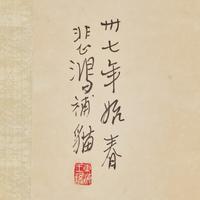 卅七年始春
悲鴻補貓